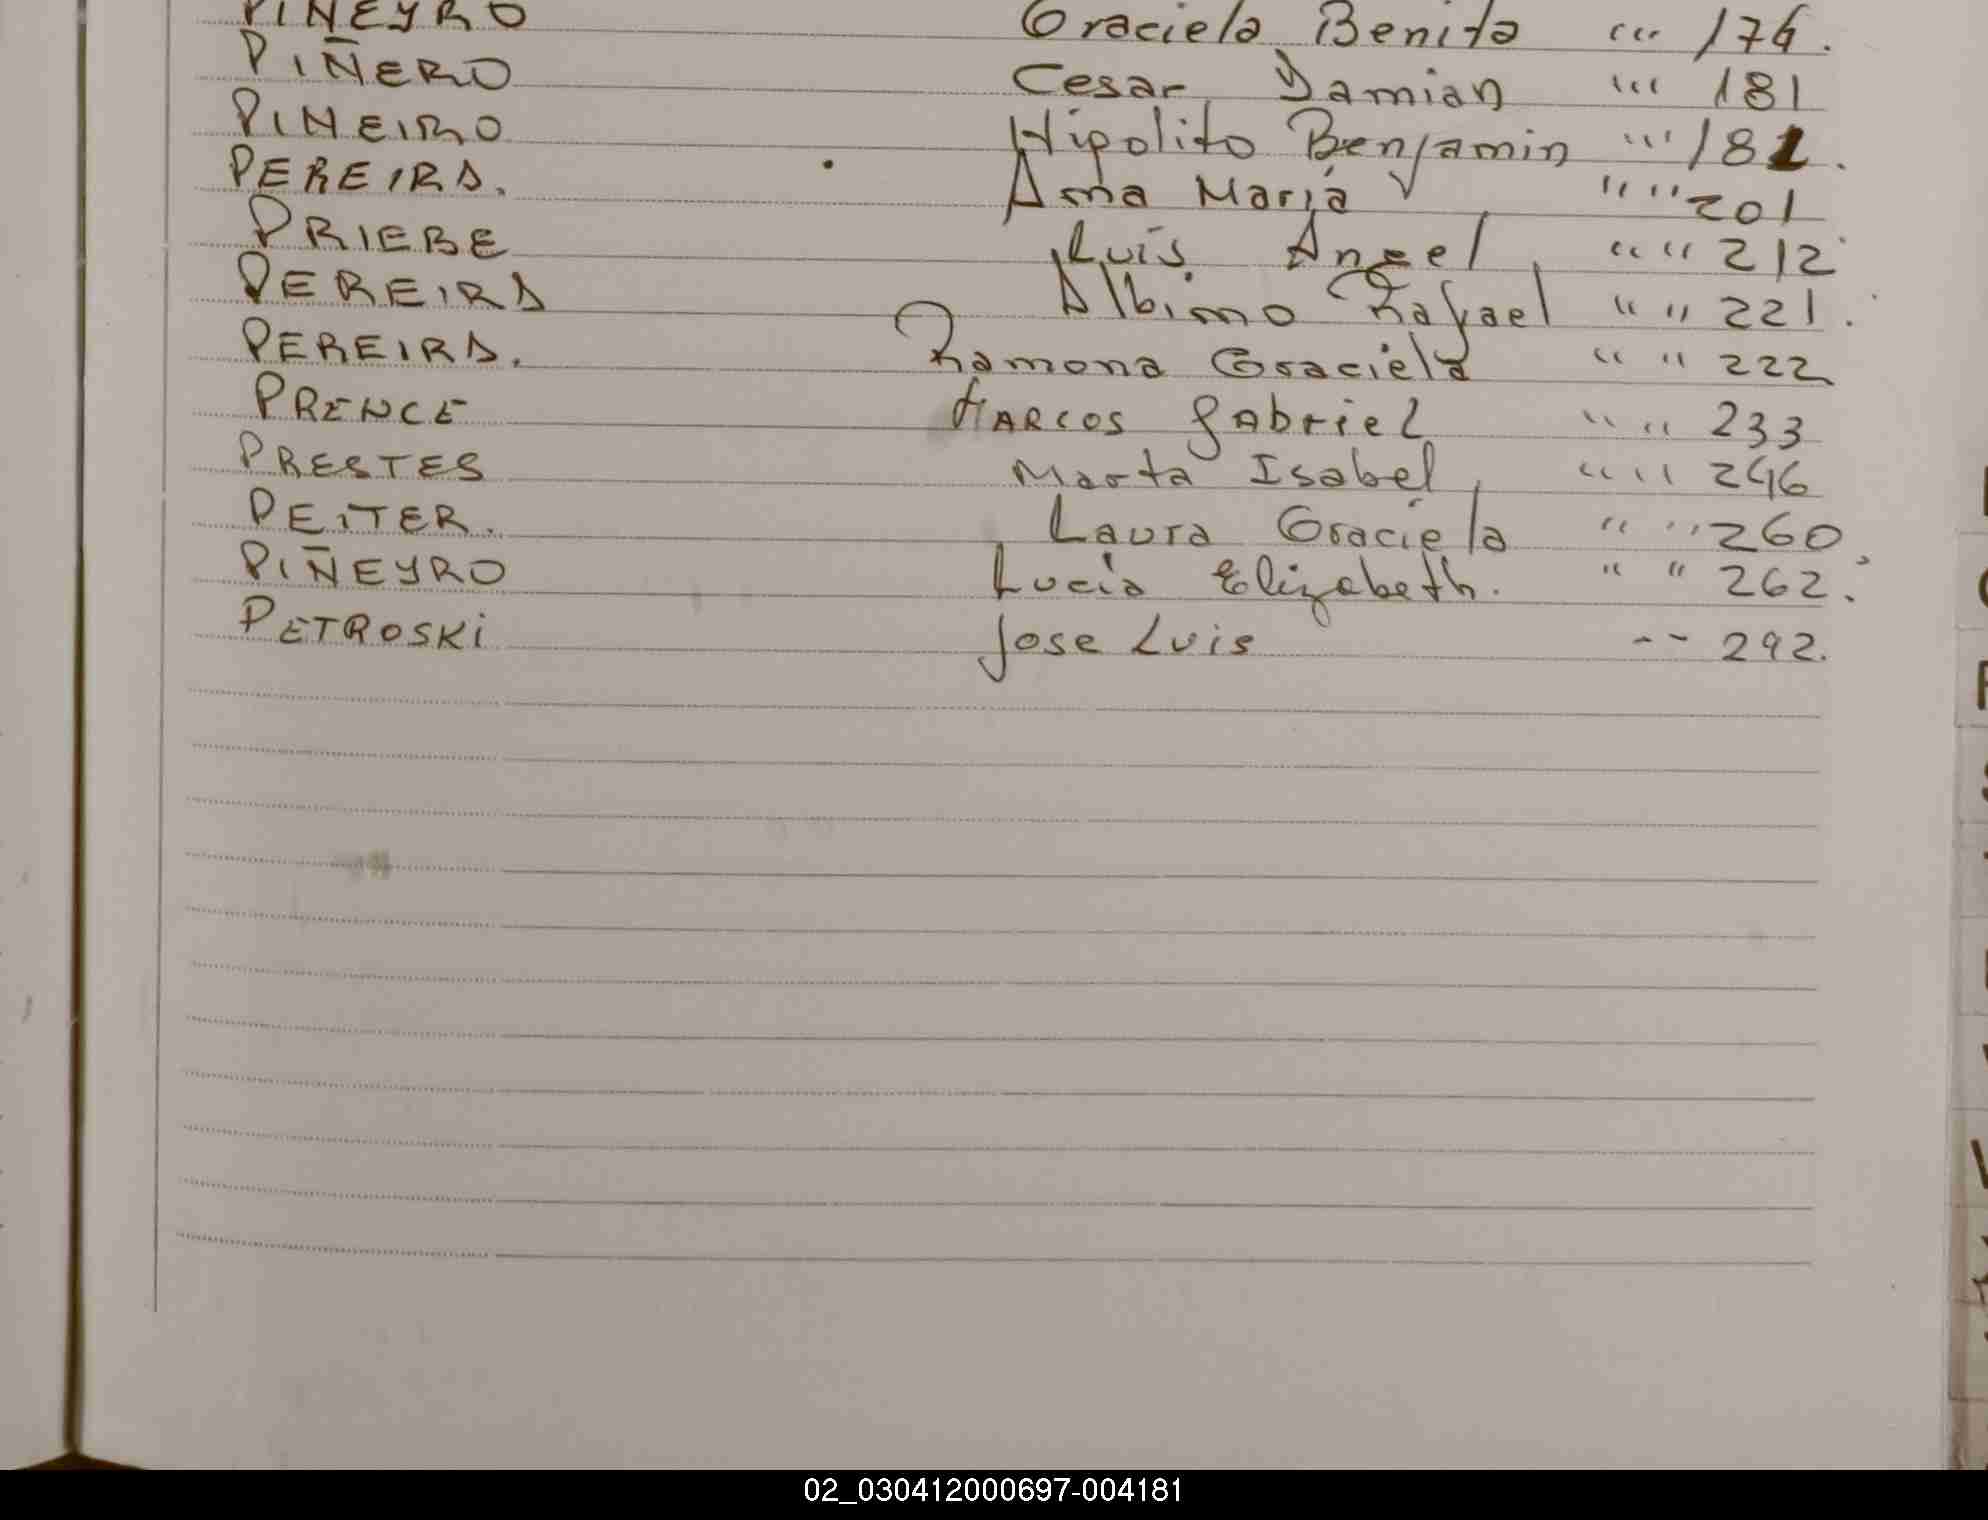 PIÑEYRO Graciela Benita " " 176.
PIÑERO Cesar Damian " " 181
PINEIRO Hipolito Benjamin " " 182.
PEREIRA. Ana Maria " " 201
PRIEBE Luis Angel " " 212
PEREIRA Albino Rafael " " 221.
PEREIRA. Ramona Graciela " " 222
PRENCE MARCOS gAbriel " " 233
PRESTES Marta Isabel " " 246
PEITER. Laura Graciela " " 260.
PIÑEYRO Lucia Elizabeth. " " 262.
PETROSKi Jose Luis -- 292.
02_030412000697-004181